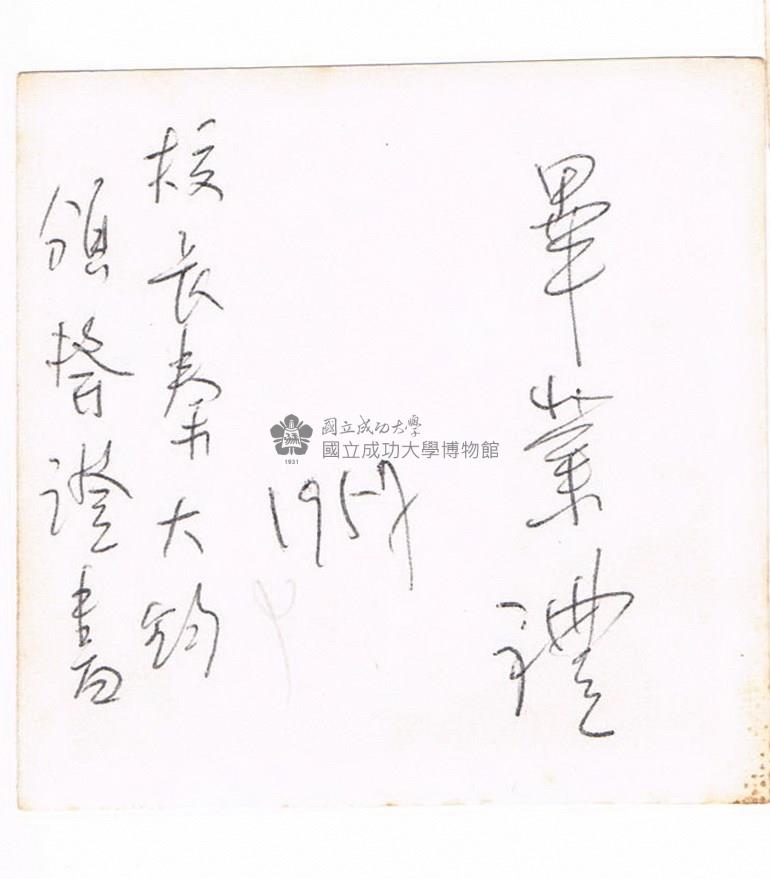 畢業禮
1957
校長秦大鈞
頒發證書
國立成功大學
國立成功大學博物館
1931